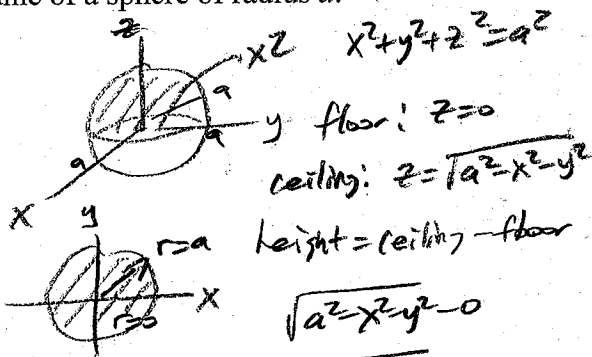 of a sphere of radius a.
z
x2 x²+y²+z²=a²
a
a y floor: z=0
a
ceiling: z=√a²-x²-y²
x
y
r=a height = ceiling - floor
x
r=0 √a²-x²-y²-0